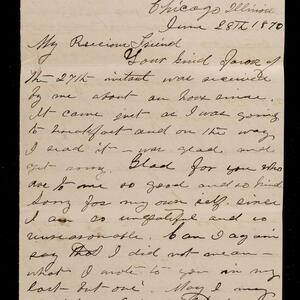 Chicago Illinois
June 28th 1870
My Precious Friend
Your kind favor of
the 27th instant was received
by me about an hour since.
It came just as I was going
to breakfast and on the way
I read it - was glad and
yet sorry. Glad for you who
are to me so good and so kind
sorry for my own self since
I am so ungrateful and so
unreasonable. Can I again
say that I did not mean -
what I wrote to you in my
last but one! May I my